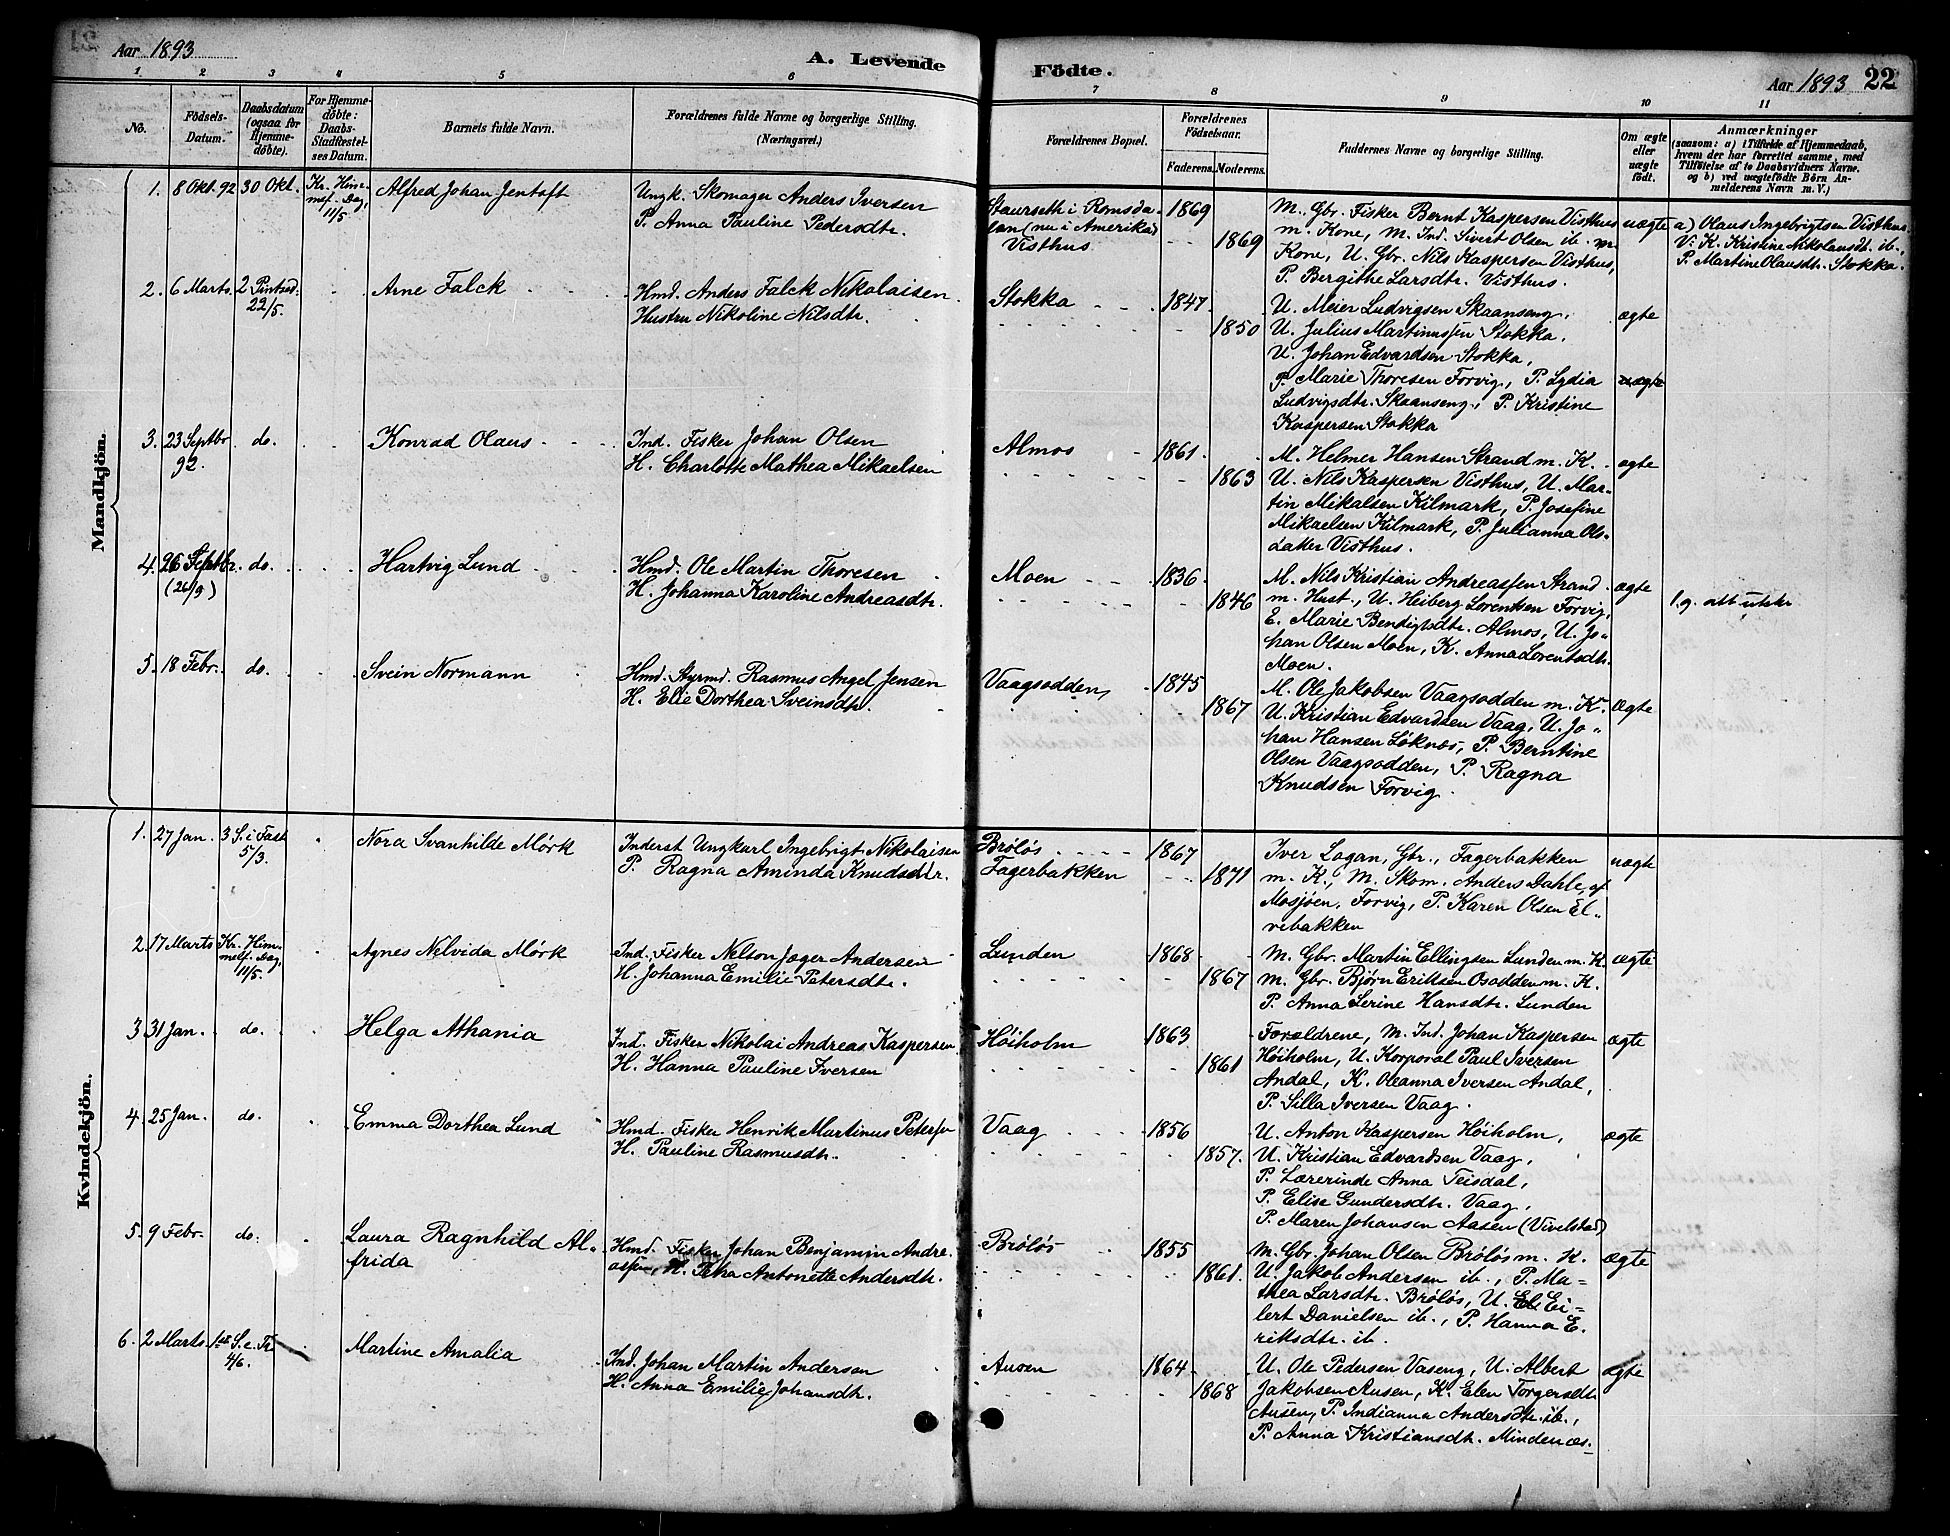 Aar 1893
A. Levende
1 2 3 4 5 6
No.
Födsels-Datum.
Daabsdatum (ogsaa for Hjemmedöbte).
For Hjemmedöbte: Daabs-Stadfæstelses Datum.
Barnets fulde Navn.
Forældrenes fulde Navne og borgerlige Stilling.
(Næringsvei.)
Mandkjön.
1. 8 Okt. 92 30 Okt. Kr. Him- Alfred Johan Jentoft Ungk. Skomager Anders Iversen
melf. Dag, P. Anna Pauline Pedersdtr.
11/5
2. 6 Marts 2 Pintsed. Arne Falck Hmd. Anders Falck Nikolaisen
22/5. Hustru Nikoline Nilsdtr.
3. 23 Septbr. do. Konrad Olaus Ind. Fisker Johan Olsen
92. H. Charlotte Mathea Mikaelsen
4. 26 Septbr. do. Hartvig Lund Hmd. Ole Martin Thoresen
(26/9) H. Johanna Karoline Andreasdtr.
5. 18 Febr. do. Svein Normann Hmd. Styrmd. Rasmus Angel Jensen
H. Elie Dorthea Sveinsdtr.
Kvindekjön.
1. 27 Jan. 3 S. i Fast. Nora Svanhilde Mørk Inderst Ungkarl Ingebrigt Nikolaisen
5/3. P. Ragna Aminda Knudsdtr.
2. 17 Marts Kr. Him- Agnes Nelvida Mørk Ind. Fisker Nelson Jæger Andersen
melf. Dag, H. Johanna Emilie Petersdtr.
11/5.
3 31 Jan. do. Helga Athania Ind. Fisker Nikolai Andreas Kaspersen
H. Hanna Pauline Iversen
4. 25 Jan. do. Emma Dorthea Lund Hmd. Fisker Henrik Martinus Petersen
H. Pauline Rasmusdtr.
5. 9 Febr. do. Laura Ragnhild Al- Hmd. Fisker Johan Benjamin Andre-
frida assen, H. Petra Antonette Andersdtr.
6. 2 Marts 1ste S. e. Tr. Martine Amalia Ind. Johan Martin Andersen
4/6. H. Anna Emilie Johansdtr.
Födte.
Aar 1893 22
7 8 9 10 11
Forældrenes Bopæl.
Forældrenes Födselsaar.
Faderens. Moderens.
Faddernes Navne og borgerlige Stilling.
Om ægte eller uægte födt.
Anmærkninger
(saasom: a) i Tilfælde af Hjemmedaab, hvem der har forrettet samme, med Tilföielse af to Daabsvidners Navne. og b) ved uægtefödte Börn Anmelderens Navn m. V.)
Staurseth i Romsda- 1869 M. Gbr. Fisker Bernt Kaspersen Visthus uægte a) Olaus Ingebrigtsen Visthus.
len (nu i Amerika) 1869 m. Kone, M. Ind. Sivert Olsen ib. m. V: K. Kristine Nikolausdt. ib.,
Visthus Kone, U. Gbr. Nils Kaspersen Visthus, P. Martine Olausdtr. Stokka.
P. Bergithe Larsdtr. Visthus.
Stokka 1847 U. Meier Ludvigsen Skaanseng, ægte
1850 U. Julius Martinussen Stokka.
U. Johan Edvardsen Stokka,
P. Marie Thoresen Forvig, P. Lydia uægte
Ludvigsdtr. Skaanseng, P. Kristine
Kaspersen Stokka
Almos 1861 M. Helmer Hansen Strand m. K. ægte
1863 U. Nils Kaspersen Visthus, U. Mar-
tin Mikalsen Kilmark, P. Josefine
Mikaelsen Kilmark, P. Julianna Ols-
datter Visthus.
Moen 1836 M. Nils Kristian Andreassen Strand ægte
1846 m. Hust., U. Heiberg Lorentsen Forvig, 1.g. att utskr
E. Marie Bendigtsdtr. Almos, U. Jo-
han Olsen Moen, K. Anna Lorentsdtr.
Moen.
Vaagsodden 1845 M. Ole Jakobsen Vaagsodden m. K. Ægte
1867 U. Kristian Edvardsen Vaag, U. Jo-
han Hansen Løknæs, P. Berntine
Olsen Vaagsodden, P. Ragna
Knudsen Forvig.
Brøløs 1867 Iver Logan, Gbr., Fagerbakken uægte
Fagerbakken 1871 m. K., M. Skom. Anders Dahle, af
Mosjøen, Forvig, P. Karen Olsen El-
vebakken
Lunden 1868 M. Gbr. Martin Ellingsen Lunden m. K. ægte
1867 m. Gbr. Bjørn Eriksen Osodden m. K.
P. Anna Serine Hansdtr. Lunden
Høiholm 1863 Forældrene, M. Ind. Johan Kaspersen ægte
1861 Høiholm, U. Korporal Paul Iversen
Andal, K. Oleanna Iversen Andal,
P. Silla Iversen Vaag.
Vaag 1856 U. Anton Kaspersen Høiholm, ægte
1857. U. Kristian Edvardsen Vaag,
P. Lærerinde Anna Teisdal,
P. Elise Gundersdtr. Vaag,
P. Maren Johansen Aasen (Vivelstad)
Brøløs 1855 M. Gbr. Johan Olsen Brøløs m. K. ægte
1861. U. Jakob Andersen ib., P. Ma-
thea Larsdtr. Brøløs, U. Ei-
lert Danielsen ib., P. Hanna E-
riksdtr. ib.
Ausen 1864 U. Ole Pedersen Vaseng, U. Albert ægte
1868 Jakobsen Ausen, K. Elen Torgersdtr.
Ausen, P. Indianna Andersdtr. ib.,
P. Anna Kristiansdtr. Mindenæs.